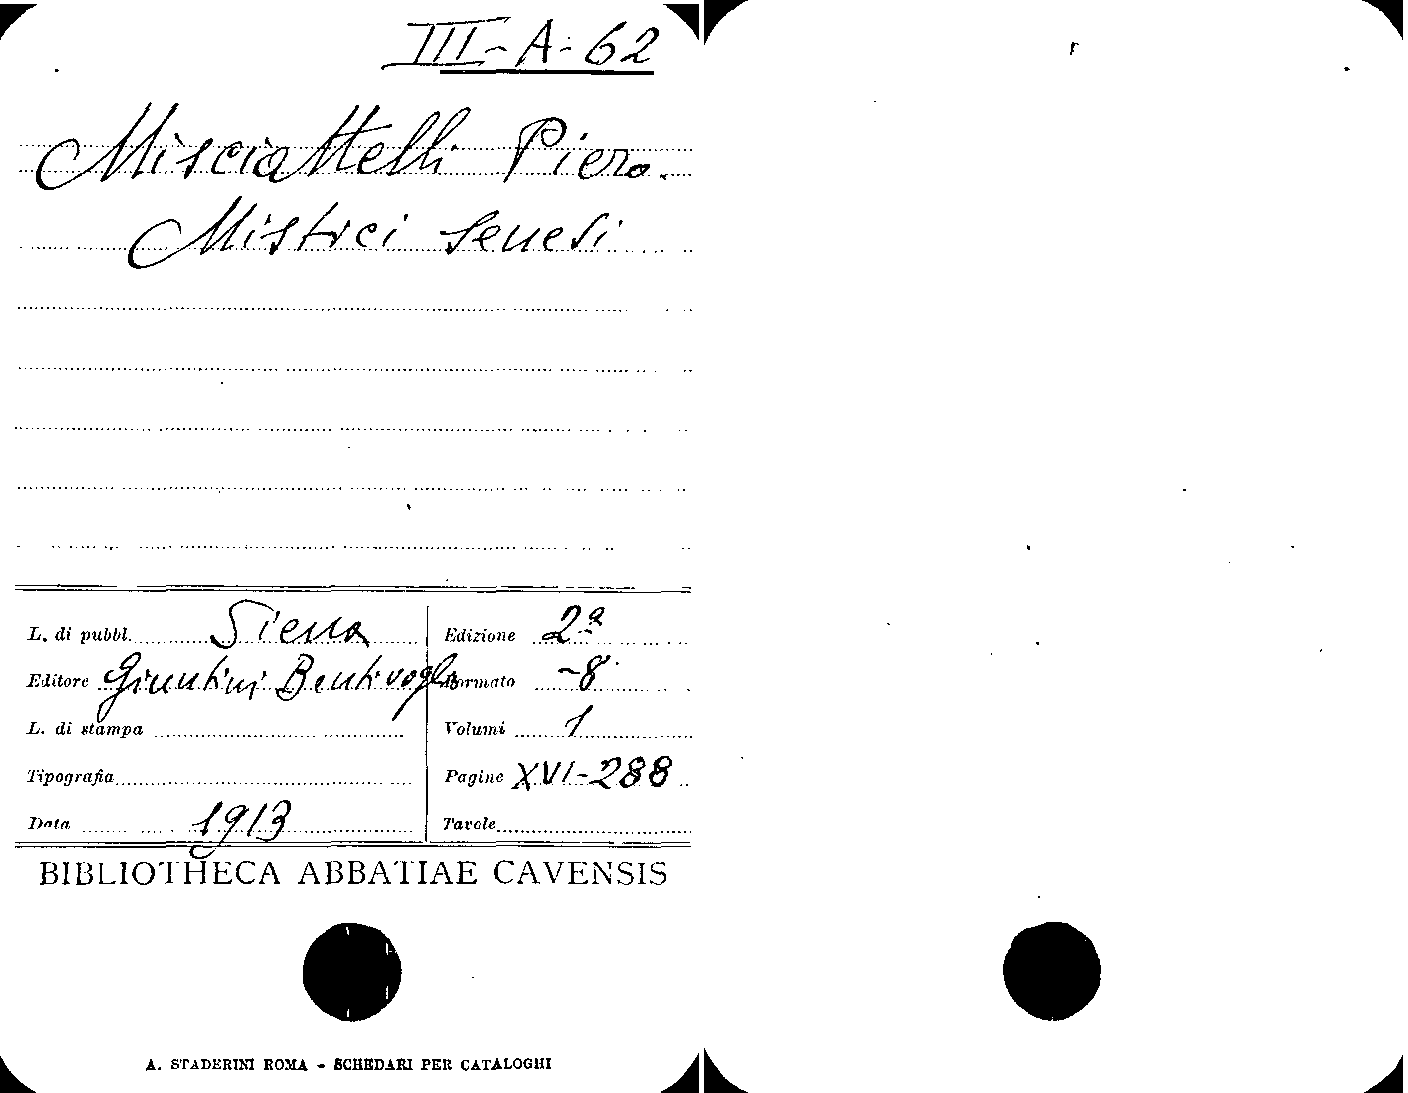 III-A-62
Misciattelli Piero.
Mistici senesi
L. di pubbl. Siena
Edizione 2ª
Editore Giuntini Bentivoglio
Formato -8°
L. di stampa
Volumi 1
Tipografia
Pagine XVI-288
Data 1913
Tavole
BIBLIOTHECA ABBATIAE CAVENSIS
A. STADERINI ROMA - SCHEDARI PER CATALOGHI